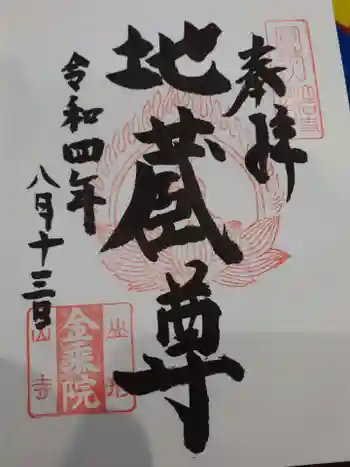 奉拝
地蔵尊
令和四年
八月十三日
金乗院